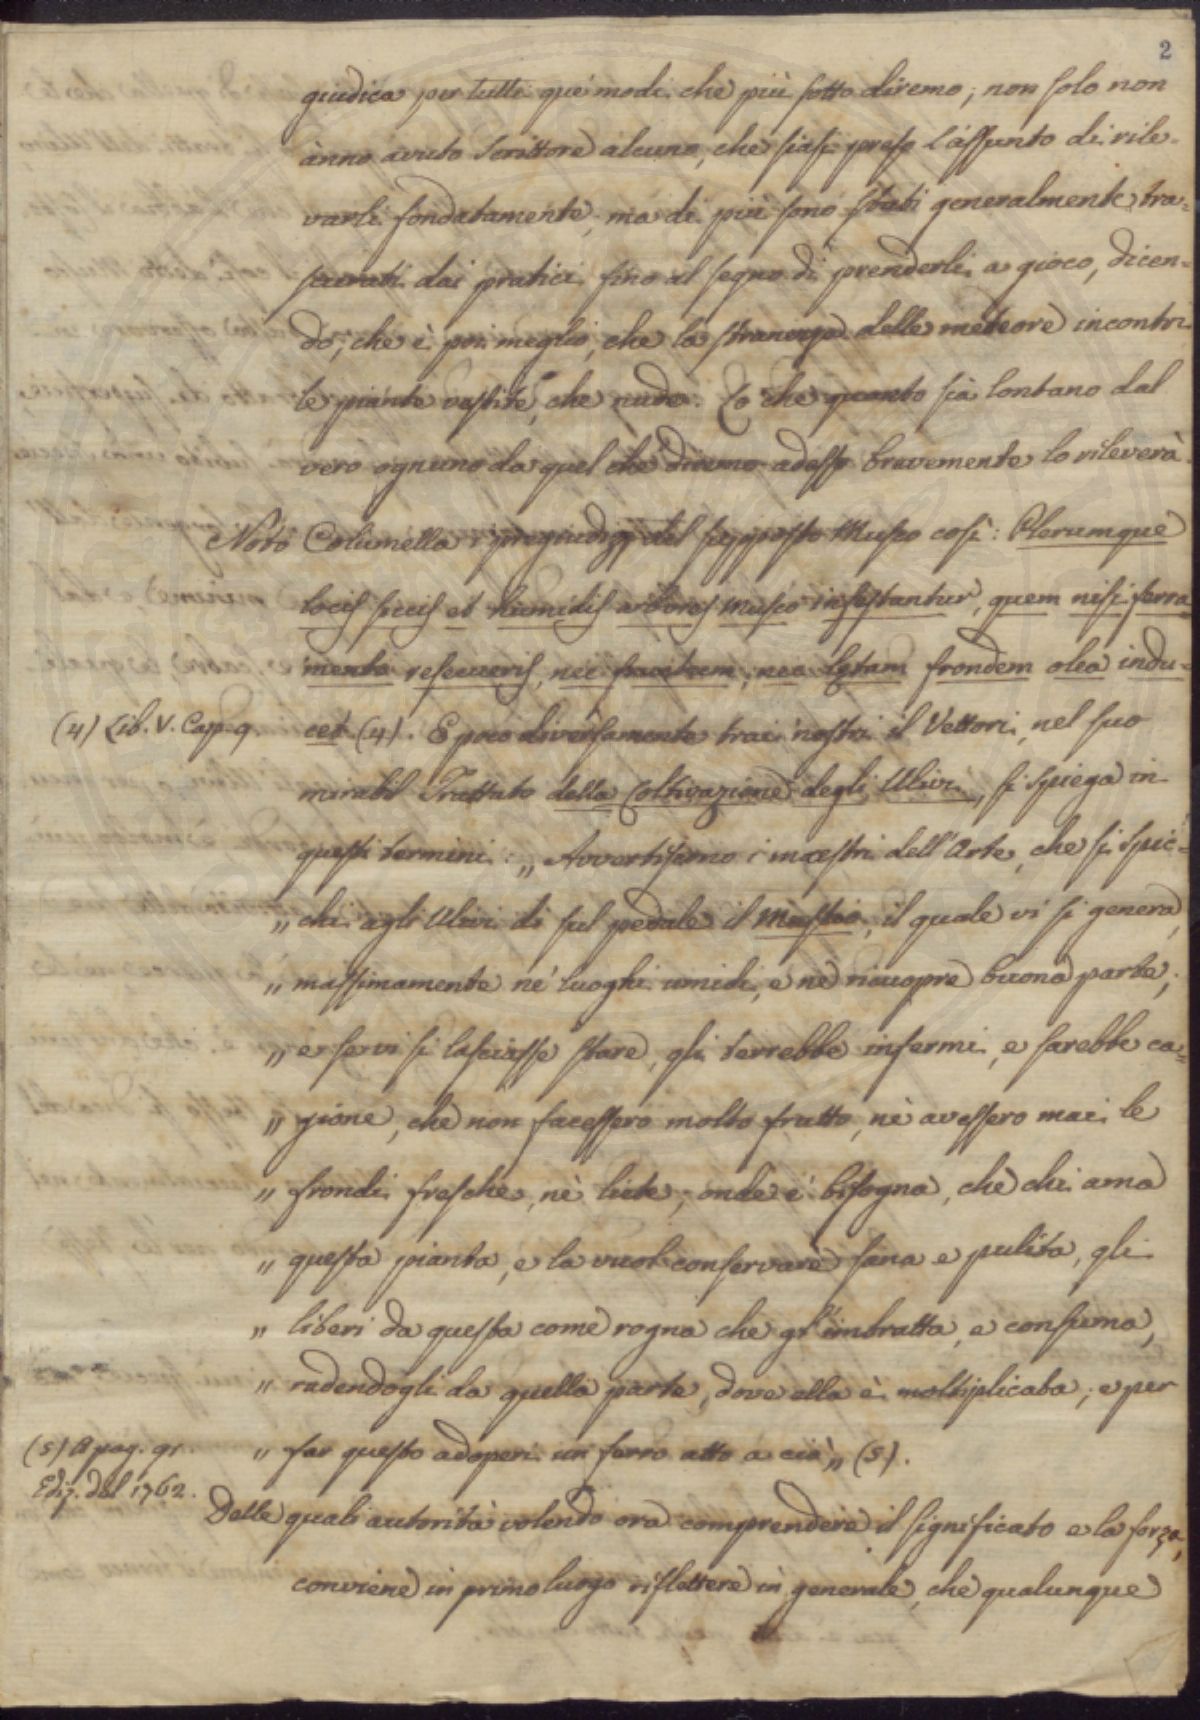 2
giudica per tutti que' modi che più sotto diremo; non solo non
ànno avuto Scrittore alcuno, che siasi preso l'assunto di rile-
varli fondatamente, ma di più sono stati generalmente tra-
scurati dai pratici fino al segno di prenderli a gioco, dicen-
do, che è poi meglio, che la stranezza delle meteore incontri
le piante vestite, che nude. Lo che quanto sia lontano dal
vero ognuno da quel che diremo adesso brevemente lo rileverà.
Notò Columella i pregiudizj del supposto Musco così: Plerumque
locis siccis et humidis arbores musco infestantur, quem nisi ferra
mento resecueris, nec fructum, nec lętam frondem olea indu-
(4) Lib. V. Cap. 9. cet (4). E poco diversamente trai nostri il Vettori, nel suo
mirabil Trattato della Coltivazione degli Ulivi, si spiega in
questi termini: „ Avvertiscono i maestri dell'Arte, che si spic-
„ chi agli Ulivi di sul pedale il Muschio, il quale vi si genera,
„ massimamente ne' luoghi umidi, e ne ricuopre buona parte;
„ e se vi si lasciasse stare, gli terrebbe infermi, e sarebbe ca-
„ gione, che non facessero molto frutto, nè avessero mai le
„ frondi fresche, nè liete; onde e' bisogna, che chi ama
„ questa pianta, e la vuol conservare sana e pulita, gli
„ liberi da questa come rogna che gl'imbratta, e consuma,
„ radendogli da quella parte, dove ella è moltiplicata; e per
(5) A pag. 91. „ far questo adoperi un ferro atto a ciò „ (5).
Ediz. del 1762.
Delle quali autorità volendo ora comprendere il significato e la forza,
conviene in primo luogo riflettere in generale, che qualunque